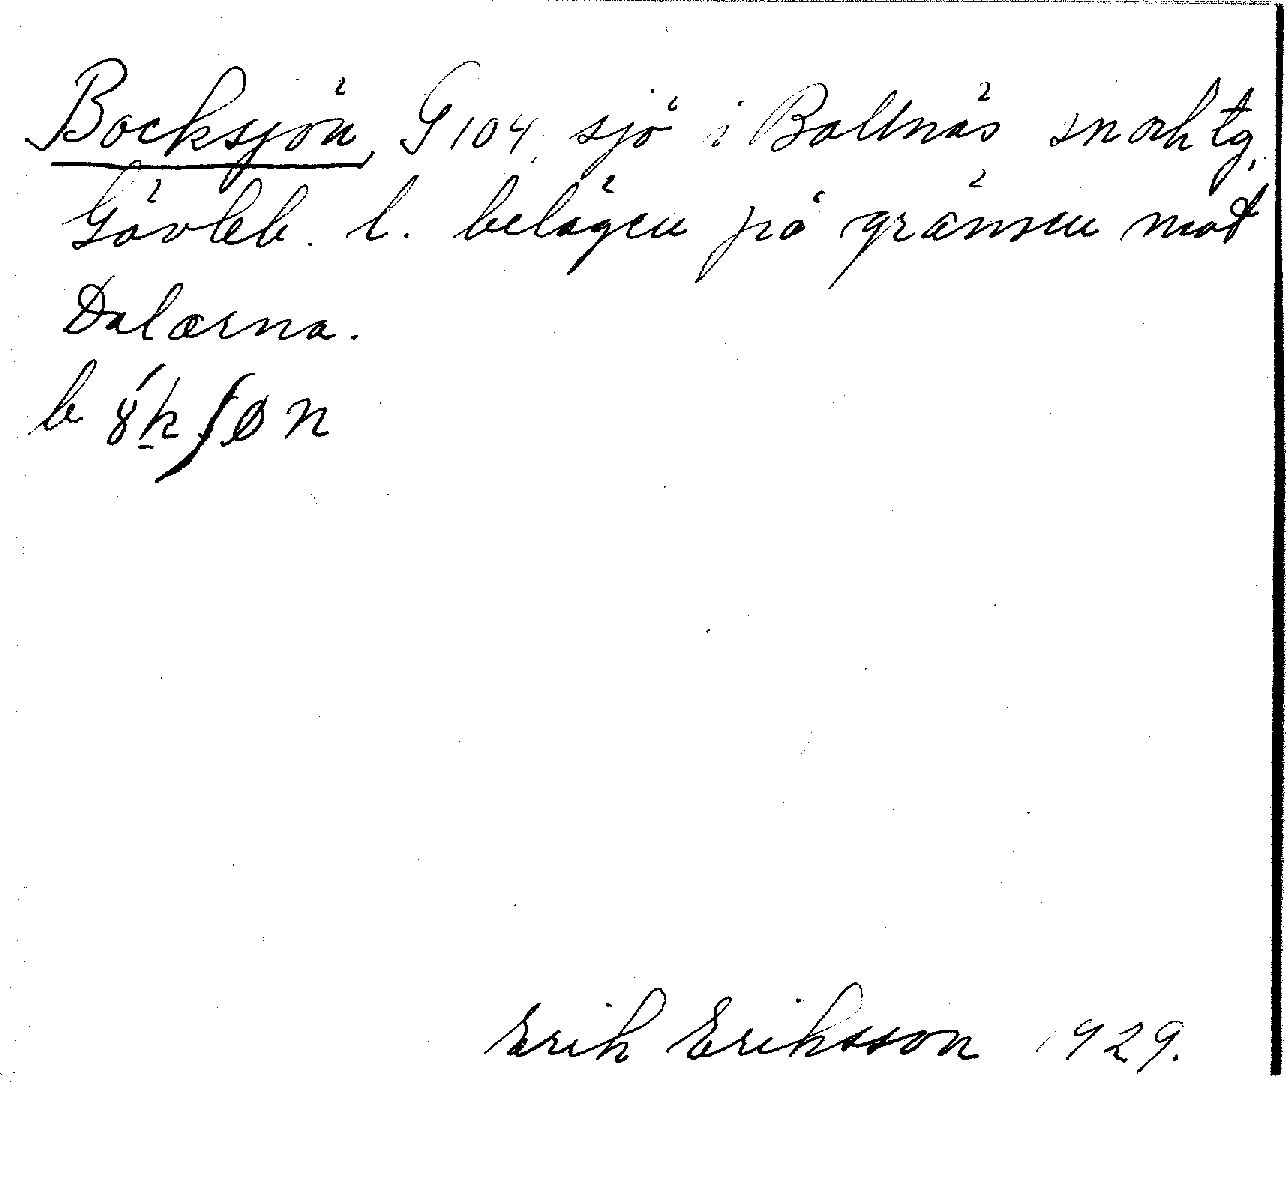 Bocksjön, G 104, sjö i Bollnäs snocktg,
Gävleb. l. belägen på gränsen mot
Dalarna.
b 8́k ʃøn
Erik Eriksson 1929.